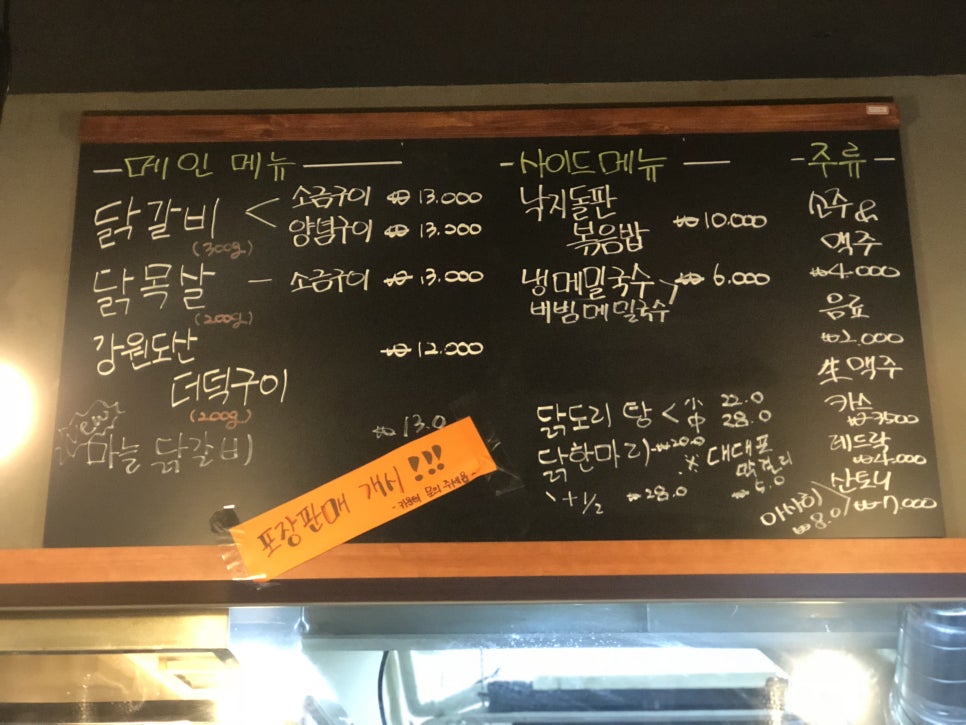 메인 메뉴
닭갈비 < 소금구이 ₩ 13.000
양념구이 ₩ 13.000
(300g)
닭목살 - 소금구이 ₩ 13.000
(200g)
강원도산
더덕구이 ₩ 12.000
(200g)
new
마늘 닭갈비 ₩ 13.0
포장판매 개시!!!
- 카운터 문의 주세용 -
- 사이드메뉴 -
낙지돌판
볶음밥 ₩ 10.000
냉메밀국수 ₩ 6.000
비빔메밀국수
닭도리탕 < 小 22.0
中 28.0
닭한마리 ₩20.0
〃 + 1/2 ₩28.0
※ 대대포
막걸리
₩5.0
- 주류 -
소주 &
맥주
₩4.000
음료
₩2.000
生맥주
카스
₩3500
레드락
₩4.000
산토니
₩7.000
아사히
₩8.0